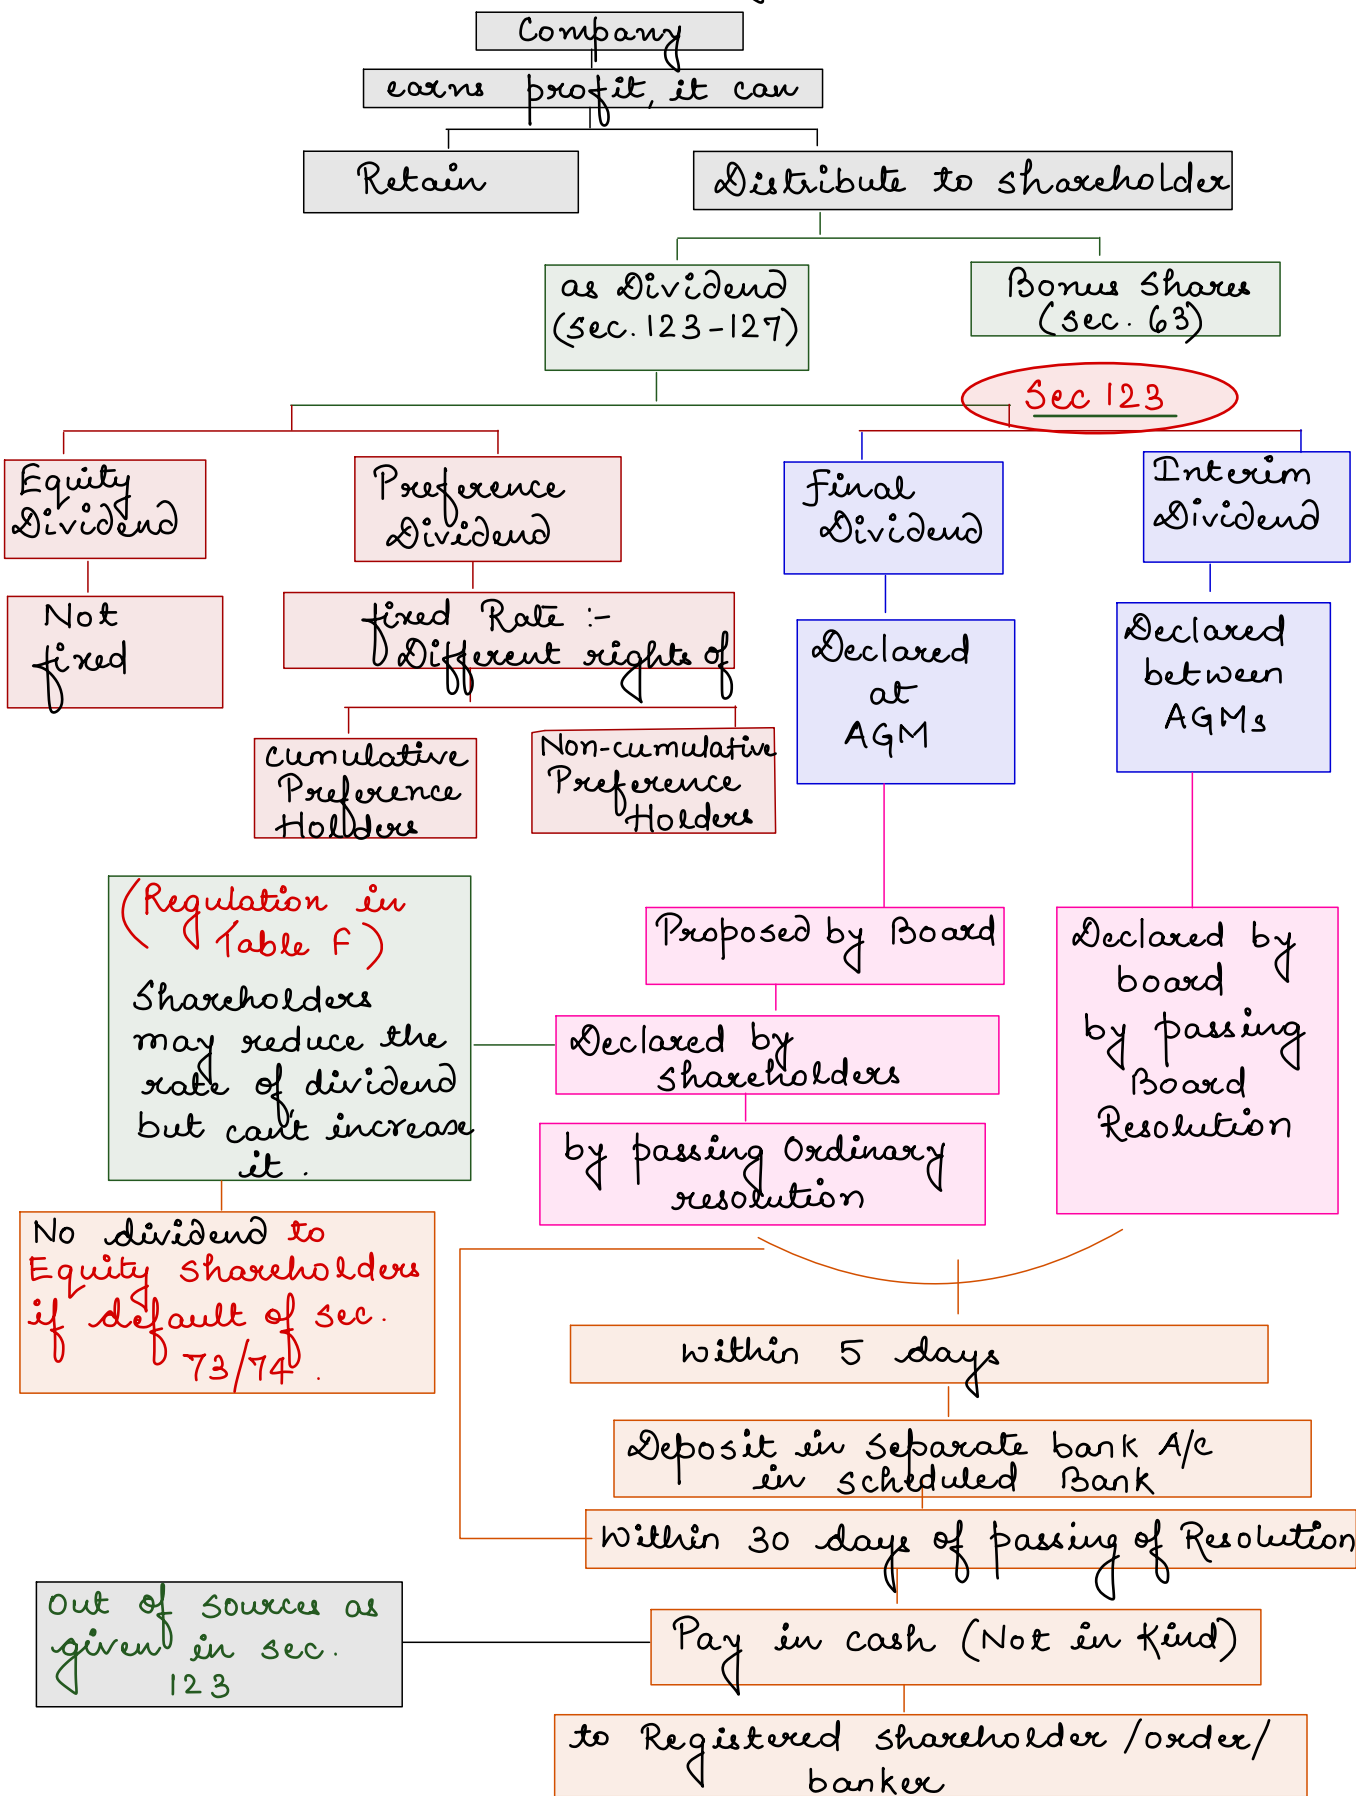 Company
earns profit, it can
Retain
Distribute to shareholder
as Dividend
(sec. 123-127)
Bonus Shares
(sec. 63)
Sec 123
Equity
Dividend
Preference
Dividend
Final
Dividend
Interim
Dividend
Not
fixed
fixed Rate :-
Different rights of
Declared
at
AGM
Declared
between
AGMs
Cumulative
Preference
Holders
Non-cumulative
Preference
Holders
(Regulation in
Table F)
Shareholders
may reduce the
rate of dividend
but can't increase
it.
Proposed by Board
Declared by
board
by passing
Board
Resolution
Declared by
shareholders
by passing Ordinary
resolution
No dividend to
Equity shareholders
if default of sec.
73/74.
within 5 days
Deposit in separate bank A/c
in scheduled Bank
Within 30 days of passing of Resolution
out of sources as
given in sec.
123
Pay in cash (Not in Kind)
to Registered shareholder/order/
banker